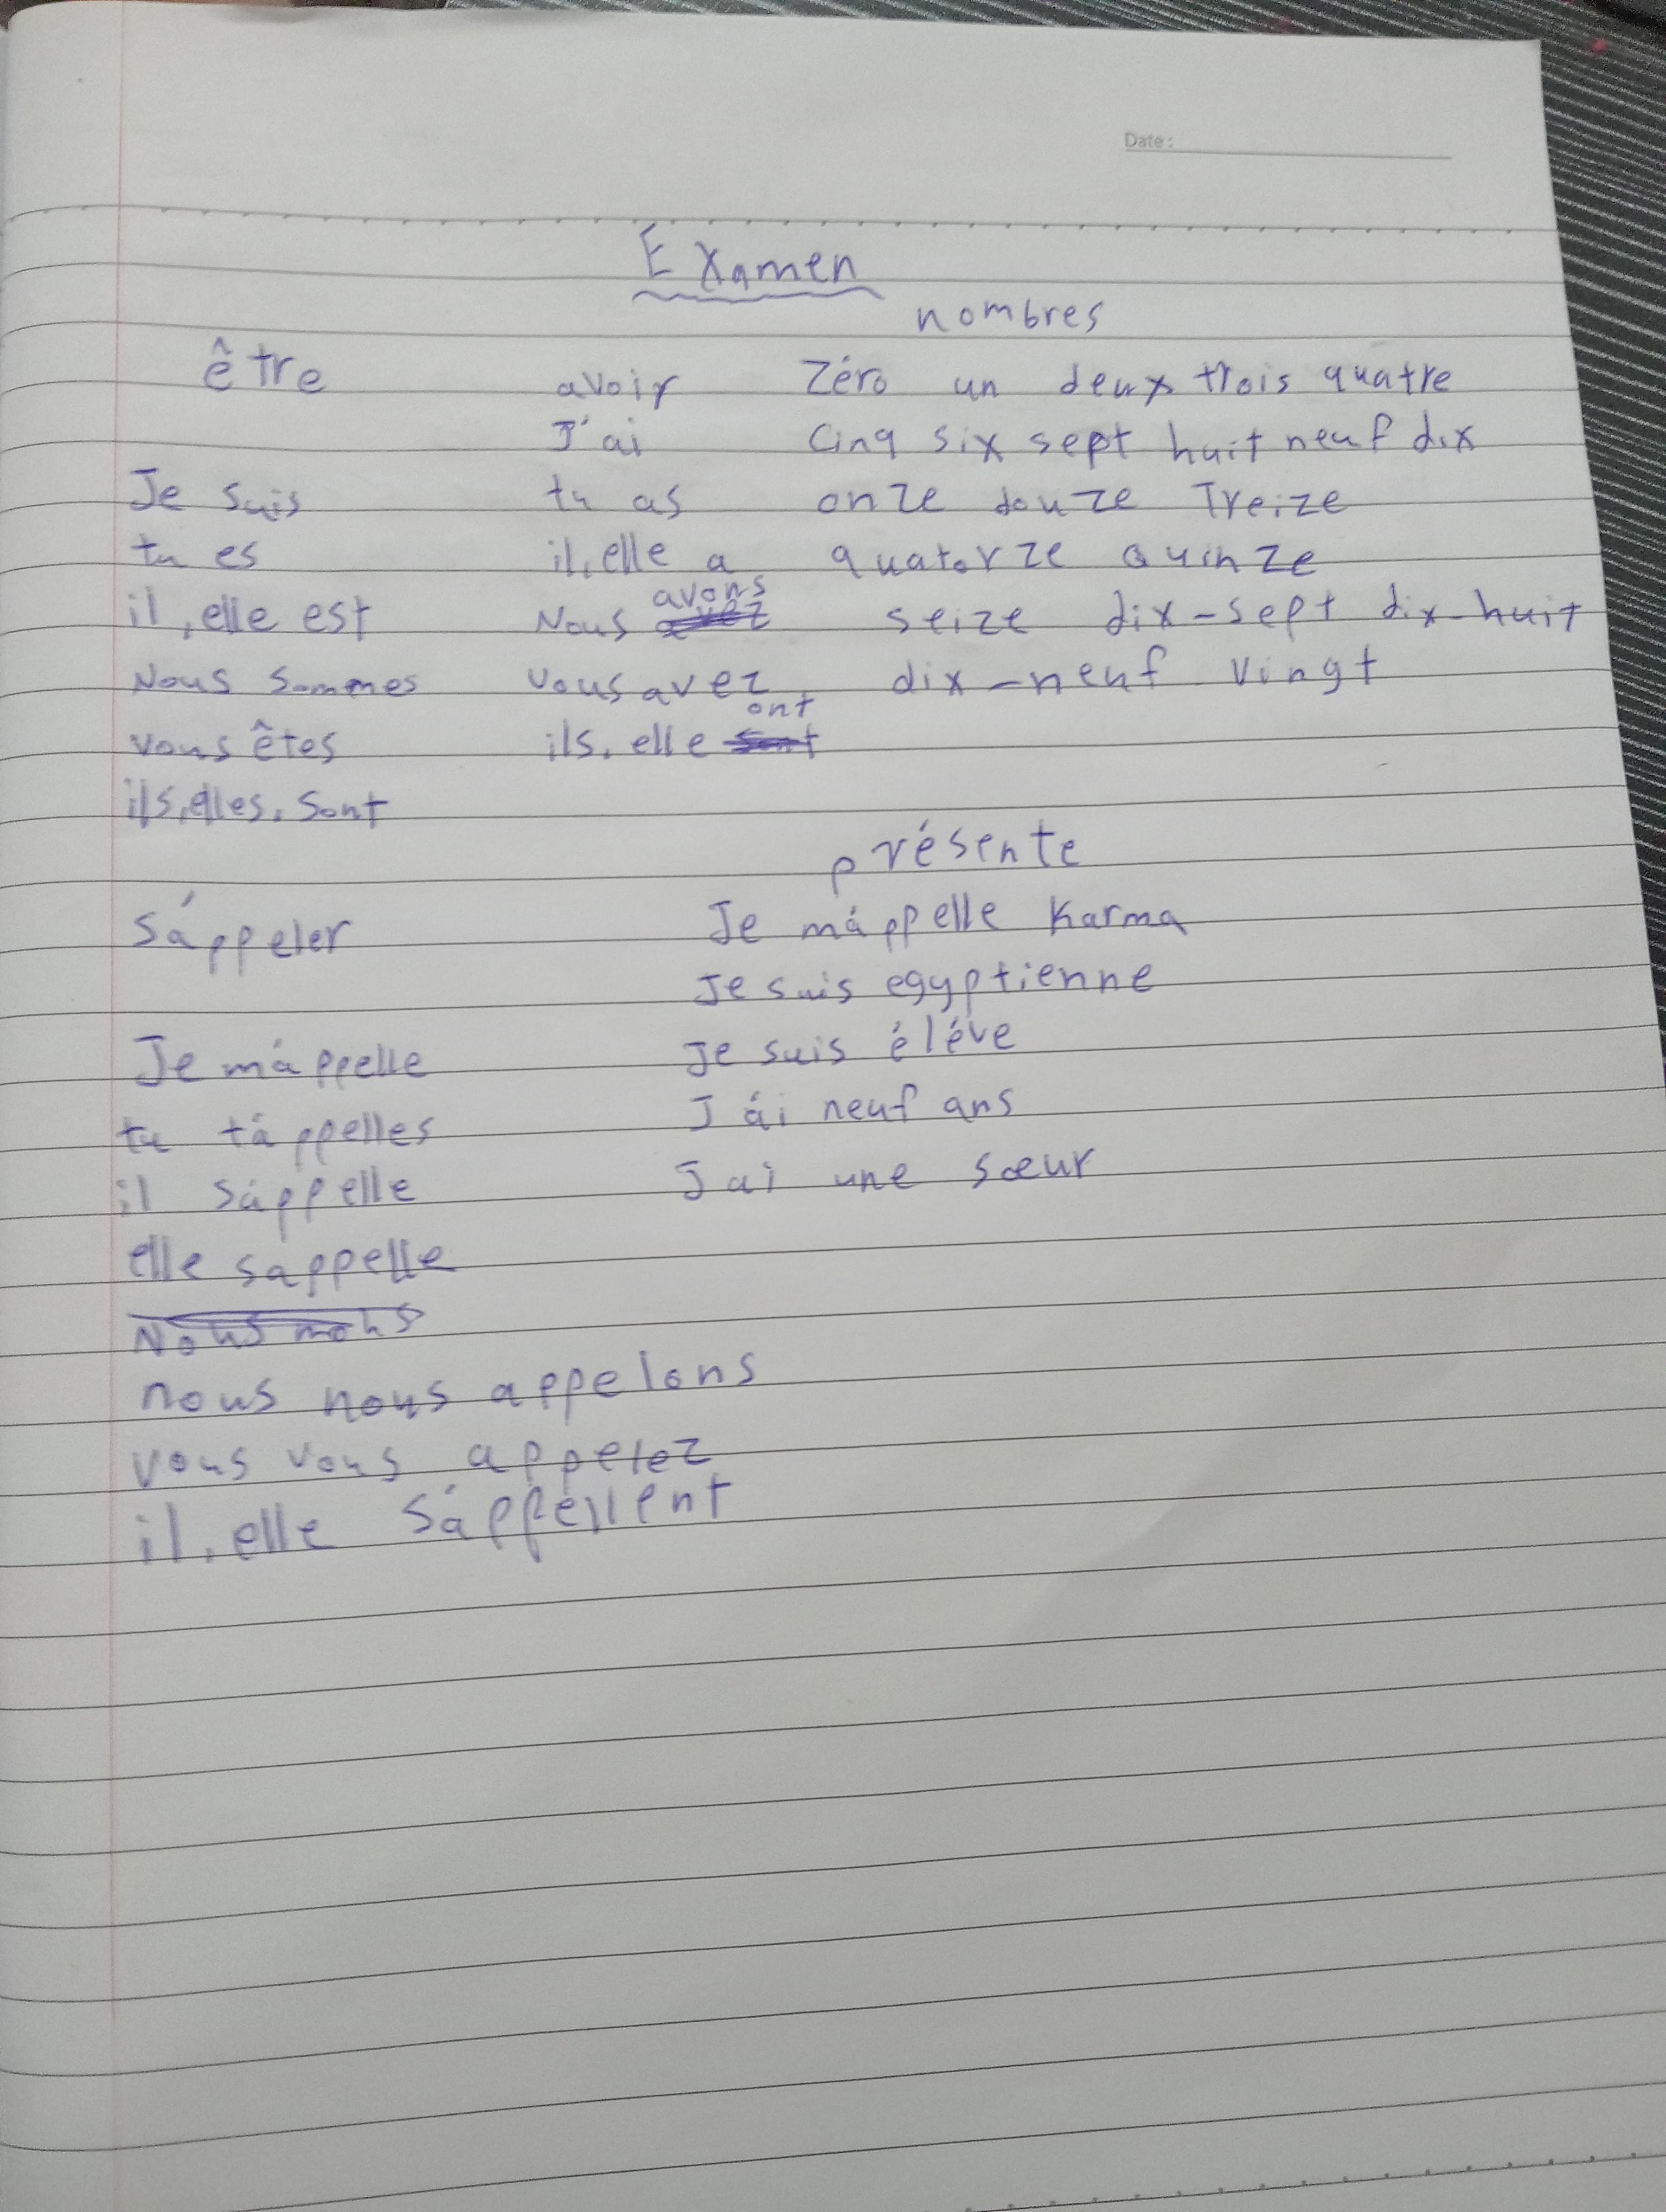 Date:
Examen
nombres
être
Je suis
tu es
il, elle est
Nous sommes
vous êtes
ils, elles, sont
avoir
J'ai
tu as
il, elle a
Nous avons
vous avez
ils, elle ont
Zéro un deux trois quatre
cinq six sept huit neuf dix
onze douze Treize
quatorze Quinze
seize dix-sept dix-huit
dix-neuf vingt
s'appeler
Je m'appelle
tu t'appelles
il s'appelle
elle sappelle
Nous mous
nous nous appelons
vous vous appelez
il, elle s'appellent
présente
Je m'appelle Karma
Je suis egyptienne
Je suis éléve
J'ai neuf ans
J ai une sœur